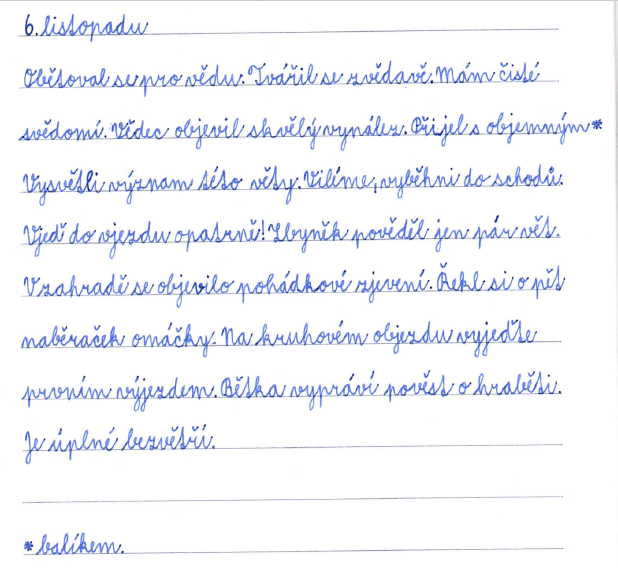 6. listopadu
Obětoval se pro vědu. Tvářil se zvědavě. Mám čisté
svědomí. Vědec objevil skvělý vynález. Přijel s objemným*
Vysvětli význam této věty. Vilíme, vyběhni do schodů.
Vjeď do vjezdu opatrně! Zbyněk pověděl jen pár vět.
V zahradě se objevilo pohádkové zjevení. Řekl si o pět
naběraček omáčky. Na kruhovém objezdu vyjeďte
prvním výjezdem. Bětka vypráví pověst o hraběti.
Je úplné bezvětří.
*balíkem.